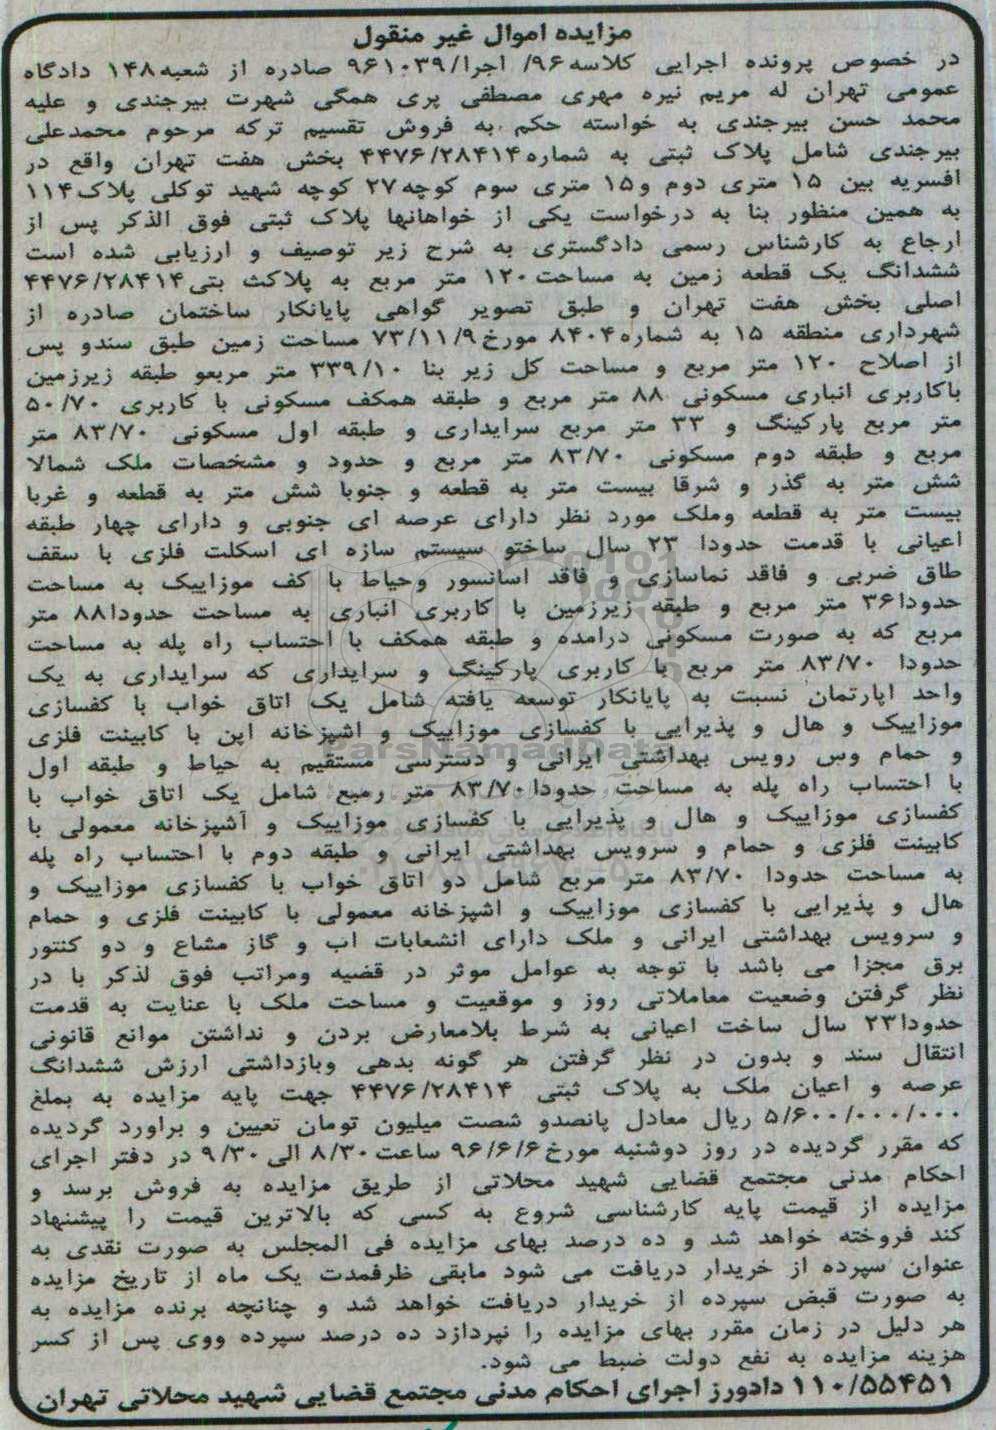 مزایده اموال غیر منقول
در خصوص پرونده اجرایی کلاسه ۹۶/ اجرا/۹۶۱۰۳۹ صادره از شعبه ۱۴۸ دادگاه
عمومی تهران له مریم نیره مهری مصطفی پری همگی شهرت بیرجندی و علیه
محمد حسن بیرجندی به خواسته حکم به فروش تقسیم ترکه مرحوم محمدعلی
بیرجندی شامل پلاک ثبتی به شماره ۴۴۷۶/۲۸۴۱۴ بخش هفت تهران واقع در
افسریه بین ۱۵ متری دوم و۱۵ متری سوم کوچه ۲۷ کوچه شهید توکلی پلاک ۱۱۴
به همین منظور بنا به درخواست یکی از خواهانها پلاک ثبتی فوق الذکر پس از
ارجاع به کارشناس رسمی دادگستری به شرح زیر توصیف و ارزیابی شده است
ششدانگ یک قطعه زمین به مساحت ۱۲۰ متر مربع به پلاکث بتی ۴۴۷۶/۲۸۴۱۴
اصلی بخش هفت تهران و طبق تصویر گواهی پایانکار ساختمان صادره از
شهرداری منطقه ۱۵ به شماره ۸۴۰۴ مورخ ۷۳/۱۱/۹ مساحت زمین طبق سندو پس
از اصلاح ۱۲۰ متر مربع و مساحت کل زیر بنا ۳۳۹/۱۰ متر مربعو طبقه زیرزمین
باکاربری انباری مسکونی ۸۸ متر مربع و طبقه همکف مسکونی با کاربری ۵۰/۷۰
متر مربع پارکینگ و ۳۳ متر مربع سرایداری و طبقه اول مسکونی ۸۳/۷۰ متر
مربع و طبقه دوم مسکونی ۸۳/۷۰ متر مربع و حدود و مشخصات ملک شمالا
شش متر به گذر و شرقا بیست متر به قطعه و جنوبا شش متر به قطعه و غربا
بیست متر به قطعه وملک مورد نظر دارای عرصه ای جنوبی و دارای چهار طبقه
اعیانی با قدمت حدودا ۲۳ سال ساختو سیستم سازه ای اسکلت فلزی با سقف
طاق ضربی و فاقد نماسازی و فاقد اسانسور وحیاط با کف موزاییک به مساحت
حدودا ۳۶ متر مربع و طبقه زیرزمین با کاربری انباری به مساحت حدودا ۸۸ متر
مربع که به صورت مسکونی درامده و طبقه همکف با احتساب راه پله به مساحت
حدودا ۸۳/۷۰ متر مربع با کاربری پارکینگ و سرایداری که سرایداری به یک
واحد اپارتمان نسبت به پایانکار توسعه یافته شامل یک اتاق خواب با کفسازی
موزاییک و هال و پذیرایی با کفسازی موزاییک و اشپزخانه اپن با کابینت فلزی
و حمام وس رویس بهداشتی ایرانی و دسترسی مستقیم به حیاط و طبقه اول
با احتساب راه پله به مساحت حدودا ۸۳/۷۰ متر رمبع شامل یک اتاق خواب با
کفسازی موزاییک و هال و پذیرایی با کفسازی موزاییک و آشپزخانه معمولی با
کابینت فلزی و حمام و سرویس بهداشتی ایرانی و طبقه دوم با احتساب راه پله
به مساحت حدودا ۸۳/۷۰ متر مربع شامل دو اتاق خواب با کفسازی موزاییک و
هال و پذیرایی با کفسازی موزاییک و اشپزخانه معمولی با کابینت فلزی و حمام
و سرویس بهداشتی ایرانی و ملک دارای انشعابات اب و گاز مشاع و دو کنتور
برق مجزا می باشد با توجه به عوامل موثر در قضیه ومراتب فوق لذکر با در
نظر گرفتن وضعیت معاملاتی روز و موقعیت و مساحت ملک با عنایت به قدمت
حدودا ۲۳ سال ساخت اعیانی به شرط بلامعارض بردن و نداشتن موانع قانونی
انتقال سند و بدون در نظر گرفتن هر گونه بدهی وبازداشتی ارزش ششدانگ
عرصه و اعیان ملک به پلاک ثبتی ۴۴۷۶/۲۸۴۱۴ جهت پایه مزایده به بملغ
۵/۶۰۰/۰۰۰/۰۰۰ ریال معادل پانصدو شصت میلیون تومان تعیین و براورد گردیده
که مقرر گردیده در روز دوشنبه مورخ ۹۶/۶/۶ ساعت ۸/۳۰ الی ۹/۳۰ در دفتر اجرای
احکام مدنی مجتمع قضایی شهید محلاتی از طریق مزایده به فروش برسد و
مزایده از قیمت پایه کارشناسی شروع به کسی که بالاترین قیمت را پیشنهاد
کند فروخته خواهد شد و ده درصد بهای مزایده فی المجلس به صورت نقدی به
عنوان سپرده از خریدار دریافت می شود مابقی ظرفمدت یک ماه از تاریخ مزایده
به صورت قبض سپرده از خریدار دریافت خواهد شد و چنانچه برنده مزایده به
هر دلیل در زمان مقرر بهای مزایده را نپردازد ده درصد سپرده ووی پس از کسر
هزینه مزایده به نفع دولت ضبط می شود.
۱۱۰/۵۵۴۵۱ دادورز اجرای احکام مدنی مجتمع قضایی شهید محلاتی تهران
ParsNamadData